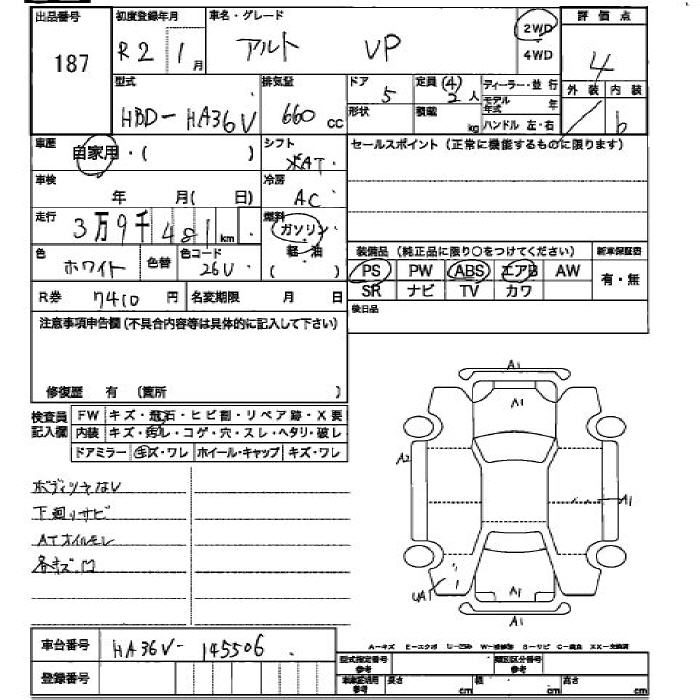 出品番号 初度登録年月 車名・グレード 評価点
187 R2 1月 アルト VP 2WD 4WD 4
型式 排気量 ドア 定員 ディーラー・並行 外装 内装
HBD-HA36V 660cc 5 ④ 2人 モデル年式 年 b
形状 積載 kg ハンドル 左・右
車歴 自家用・( ) シフト AT セールスポイント(正常に機能するものに限ります)
車検 年 月( 日) 冷房 AC
走行 3万9千481km 燃料 ガソリン 軽・油
色 ホワイト 色替 色コード 26U 装備品(純正品に限り○をつけてください) 新車保証書
PS PW ABS エアB AW 有・無
SR ナビ TV カワ
R券 7410円 名変期限 月 日 後日品
注意事項申告欄(不具合内容等は具体的に記入して下さい)
修復歴 有 (箇所 )
検査員記入欄 FW キズ・飛石・ヒビ割・リペア跡・X要
内装 キズ・汚レ・コゲ・穴・スレ・ヘタリ・破レ
ドアミラー キズ・ワレ ホイール・キャップ キズ・ワレ
下廻りサビ
ATオイルモレ
A1
A1
A2
A1
UA1
A1
A1
車台番号 HA36V-145506
登録番号
型式指定番号 参考 類別区分番号 参考
車庫証明用 参考 長さ cm 幅 cm 高さ cm